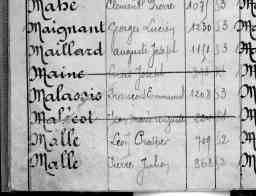 Mahé Clément Pierre 1071 S3
Maignant Georges Lucien 1230 S3
Maillard Auguste Joseph 1151 S3
Maine Joseph
Malassis François Emmanuel 1208 S3
Malécot Jean Marie Auguste
Malle Léon Prosper 709 S2
Malle Pierre Julien 868 S3